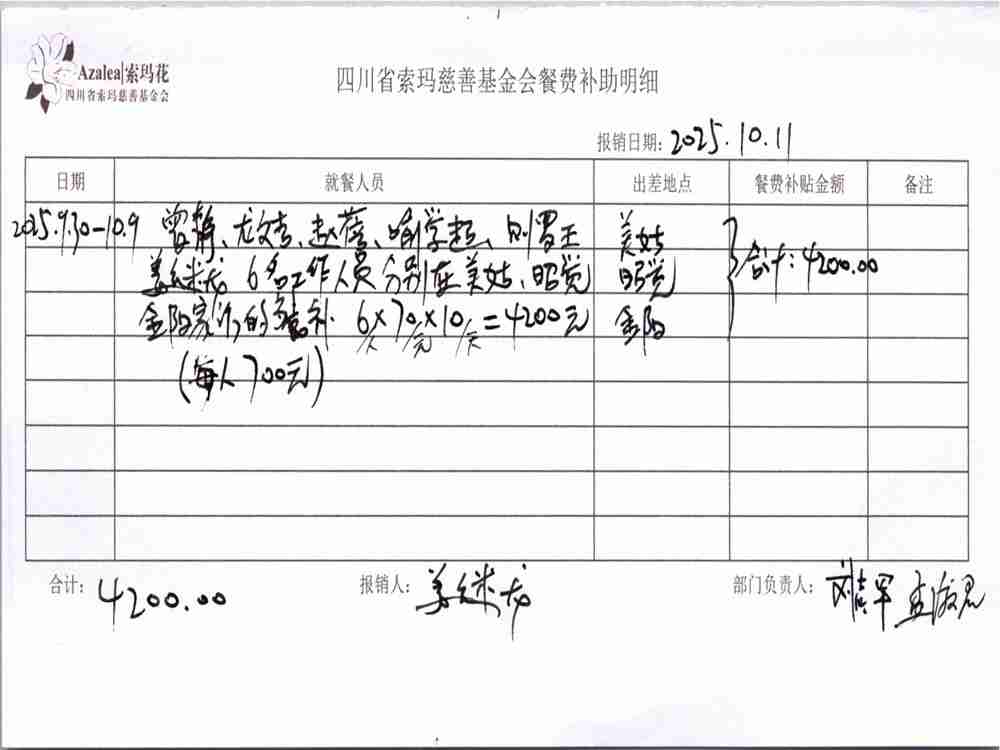 Azalea|索玛花
四川省索玛慈善基金会
四川省索玛慈善基金会餐费补助明细
报销日期: 2025.10.11
日期 就餐人员 出差地点 餐费补贴金额 备注
2025.9.30-10.9 曾静、尤文杰、赵蓓、喻学超、则罗王 美姑
姜继龙 6名工作人员分别在美姑、昭觉 昭觉 合计:4200.00
金阳家访的餐补. 6人×70元×10天=4200元 金阳
(每人700元)
合计: 4200.00 报销人: 姜继龙 部门负责人: